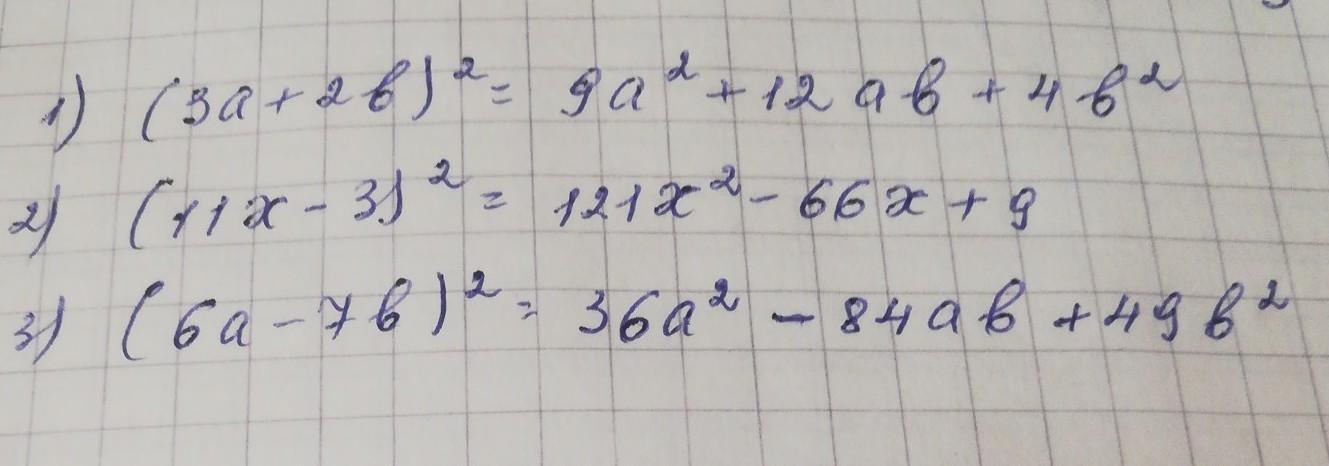 1) (3a+2b)² = 9a²+12ab+4b²
2) (11x-3)² = 121x²-66x+9
3) (6a-7b)² = 36a²-84ab+49b²